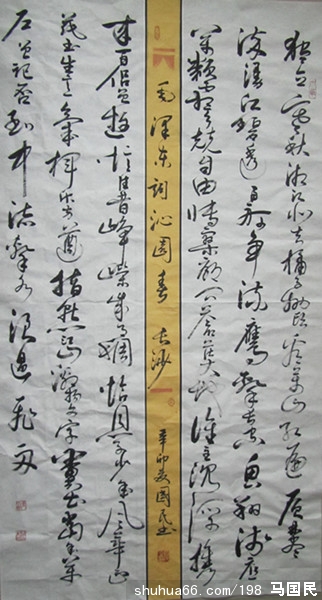 独立寒秋湘江北去橘子洲头看万山红遍层林尽
染漫江碧透百舸争流鹰击长空鱼翔浅底
万类霜天竞自由怅寥廓问苍茫大地谁主沉浮携
毛泽东词沁园春 长沙
辛卯 国民书
来百侣曾游忆往昔峥嵘岁月稠恰同学少年风华正
茂书生意气挥斥方遒指点江山激扬文字粪土当年万
曾记否到中流击水浪遏飞舟
shuhua66.com/198 马国民